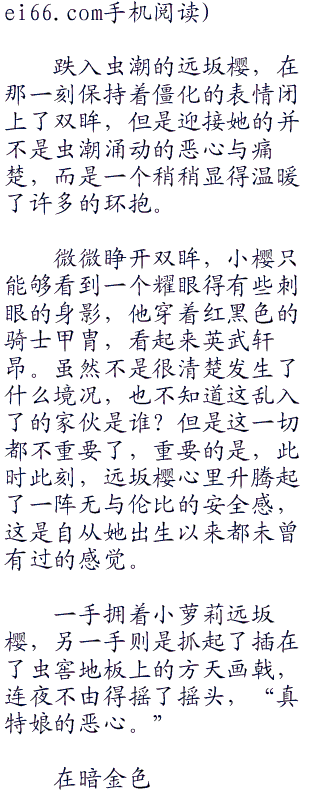 ei66.com手机阅读)
跌入虫潮的远坂樱，在
那一刻保持着僵化的表情闭
上了双眸，但是迎接她的并
不是虫潮涌动的恶心与痛
楚，而是一个稍稍显得温暖
了许多的环抱。
微微睁开双眸，小樱只
能够看到一个耀眼得有些刺
眼的身影，他穿着红黑色的
骑士甲胄，看起来英武轩
昂。虽然不是很清楚发生了
什么境况，也不知道这乱入
了的家伙是谁？但是这一切
都不重要了，重要的是，此
时此刻，远坂樱心里升腾起
了一阵无与伦比的安全感，
这是自从她出生以来都未曾
有过的感觉。
一手拥着小萝莉远坂
樱，另一手则是抓起了插在
了虫窖地板上的方天画戟，
连夜不由得摇了摇头，“真
特娘的恶心。”
在暗金色